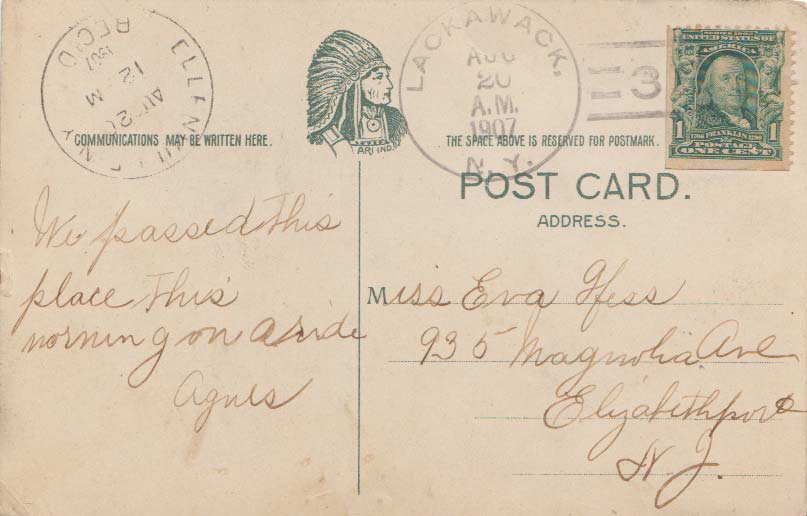 REC'D.
1907
12 M
N.Y.
LACKAWACK.
AUG
20
A.M.
1907
N.Y.
3
SERIES 1902
UNITED STATES OF
AMERICA
1
1706 FRANKLIN 1790
1
POSTAGE
ONE CENT
COMMUNICATIONS MAY BE WRITTEN HERE.
THE SPACE ABOVE IS RESERVED FOR POSTMARK.
POST CARD.
ADDRESS.
We passed this
place this
morning on a ride
Agnes
Miss Eva Hess
935 Magnolia Ave
Elizabethport
N J.